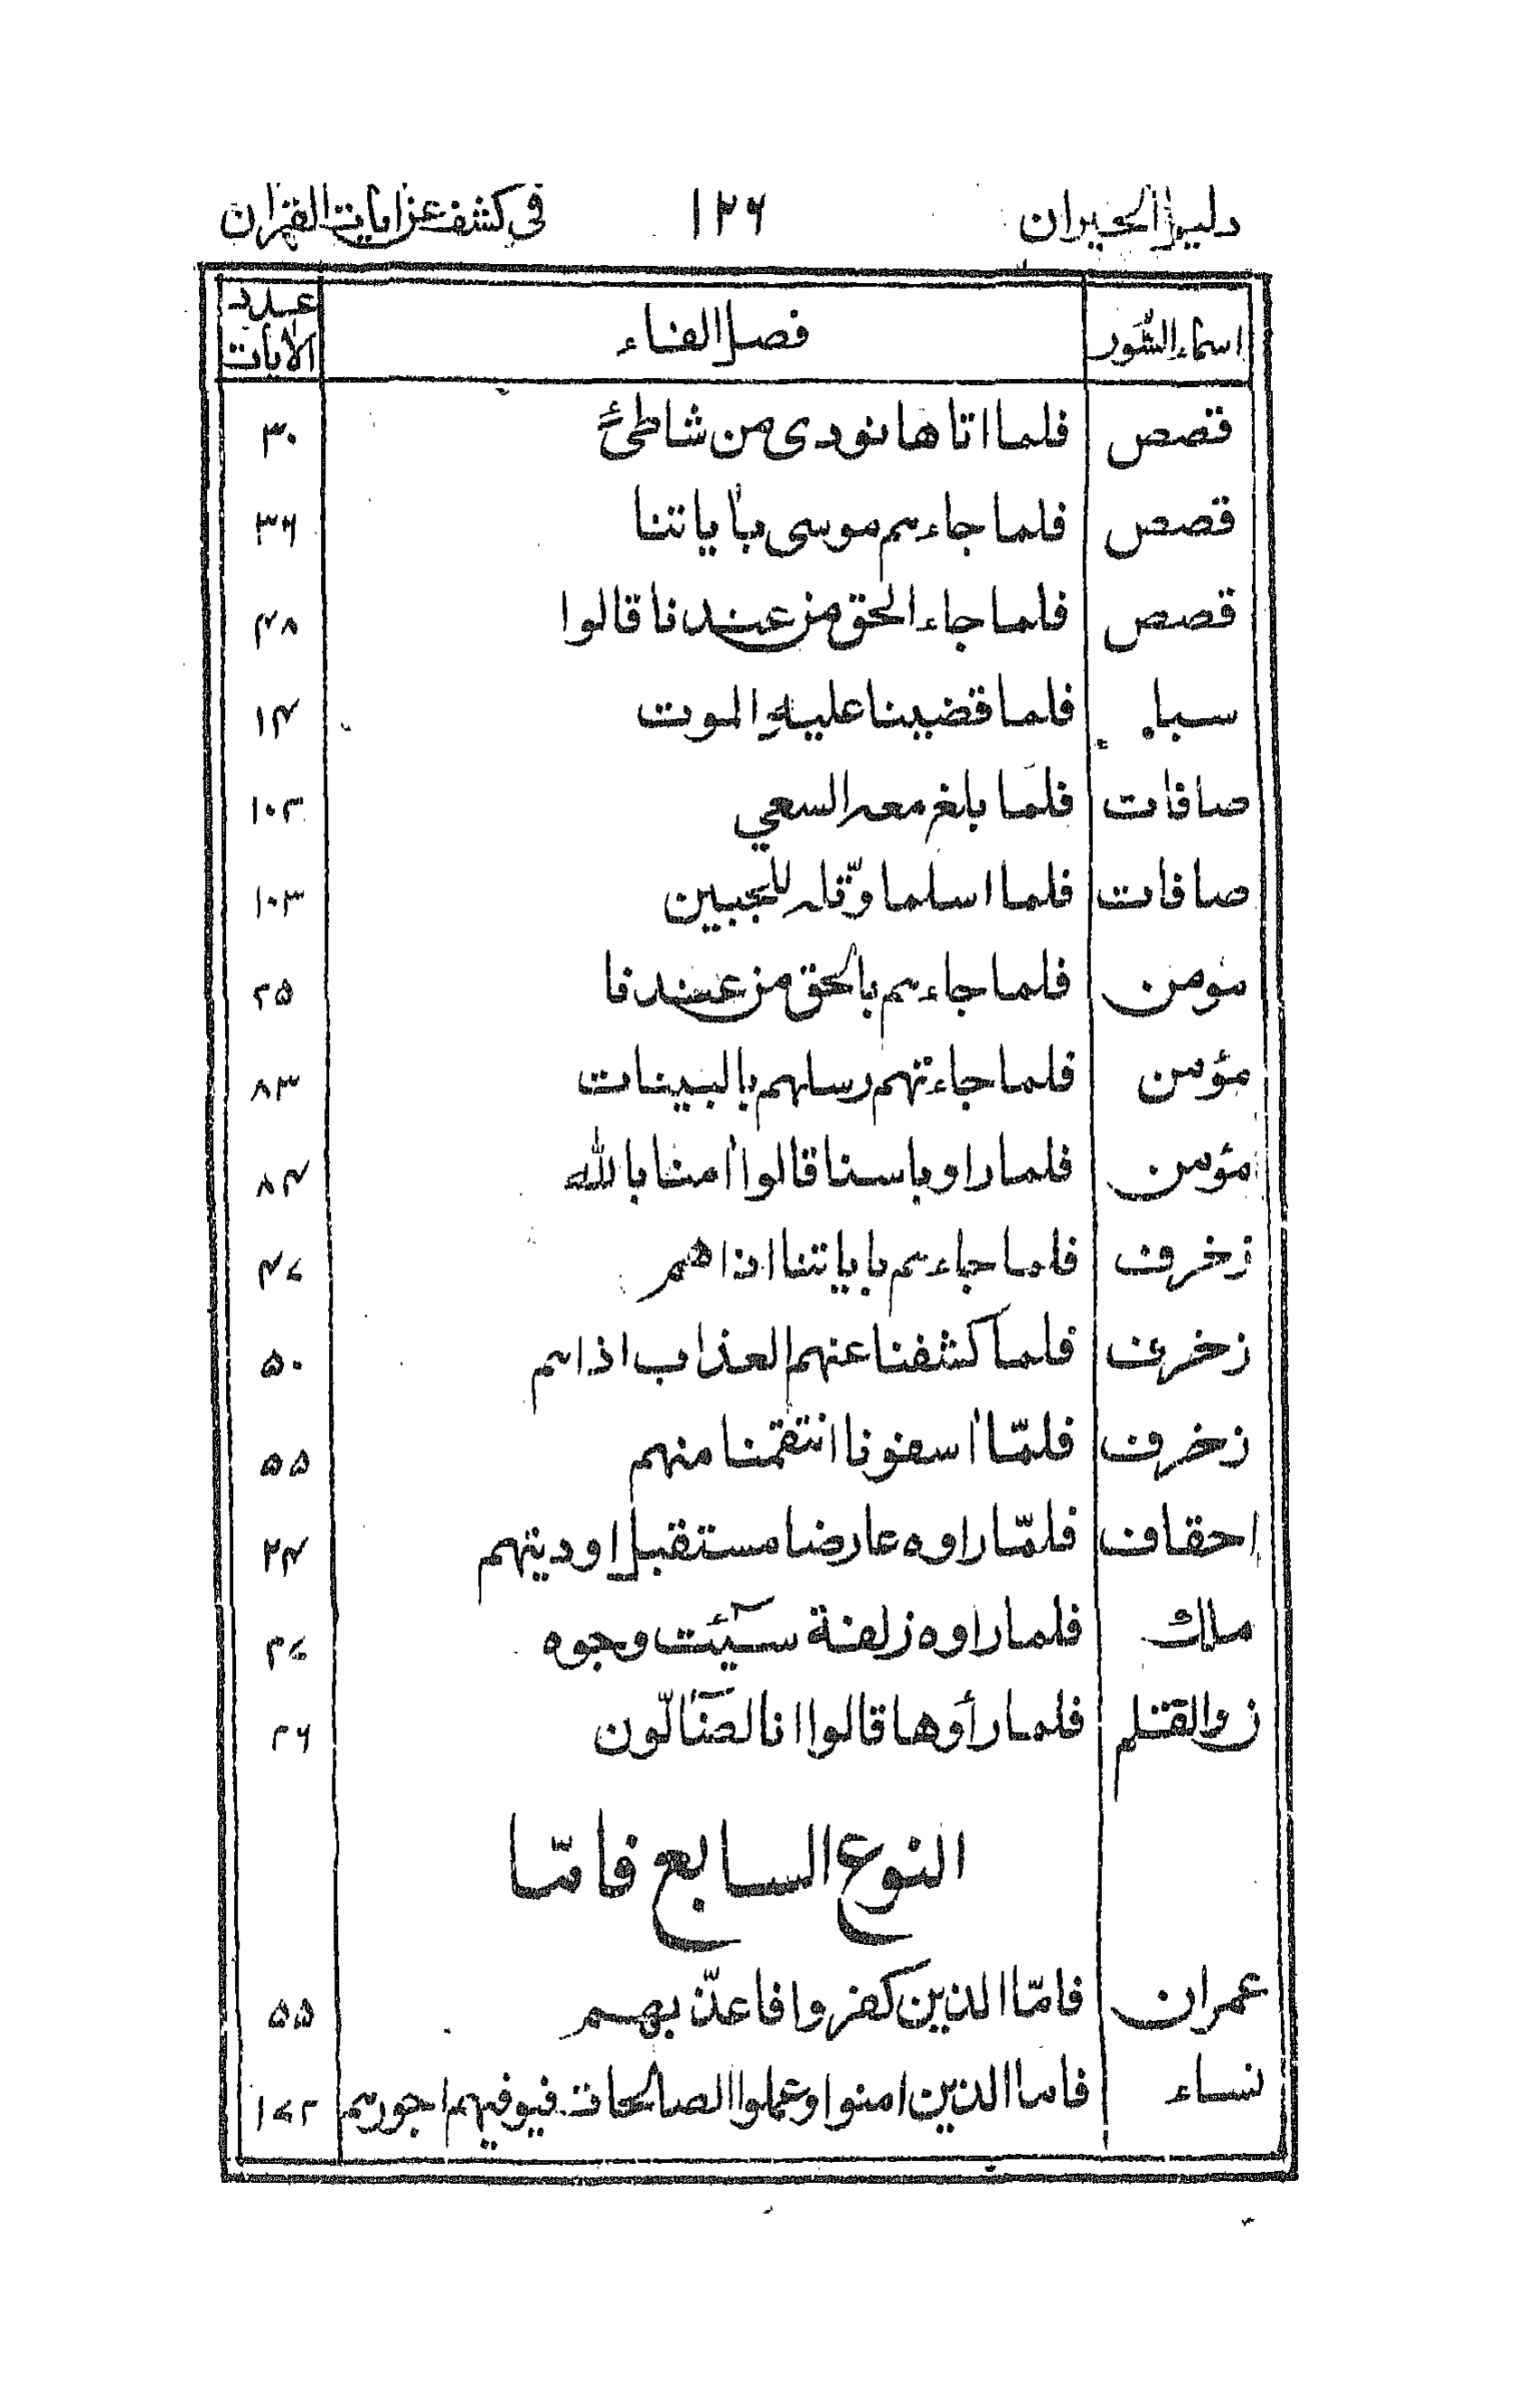 دليل الحيران ١٢٦ في كشف عن ايات القران
اسماء السُّور فصل الفاء عدد الآيات
قصص فلما اتاها نودى من شاطئ ٣٠
قصص فلما جاءهم موسى باٰياتنا ٣٦
قصص فلما جاء الحق من عندنا قالوا ۴۸
سبا فلما قضينا عليه الموت ۱۴
صافات فلمّا بلغ معه السعي ١٠٢
صافات فلما اسلما وتّله للجبين ١٠٣
مؤمن فلما جاءهم بالحق من عندنا ۲۵
مؤمن فلما جاءتهم رسلهم بالبينات ٨٣
مؤمن فلما راو باسنا قالوا اٰمنا بالله ۸۴
زخرف فلما جاءهم باياتنا اذا هم ۴۷
زخرف فلما كشفنا عنهم العذاب اذا هم ۵۰
زخرف فلمّا اٰسفونا انتقمنا منهم ۵۵
احقاف فلمّا راوه عارضا مستقبل اوديتهم ۲۴
ملك فلما راوه زلفة سيٓئت وجوه ٢٧
ن والقلم فلما رأوها قالوا انا لضآلّون ٢٦
النوع السابع فامّا
عمران فامّا الذين كفروا فاعذّبهم ۵۵
نساء فاما الذين امنوا وعملوا الصالحات فيوفيهم اجورهم ١٧٢